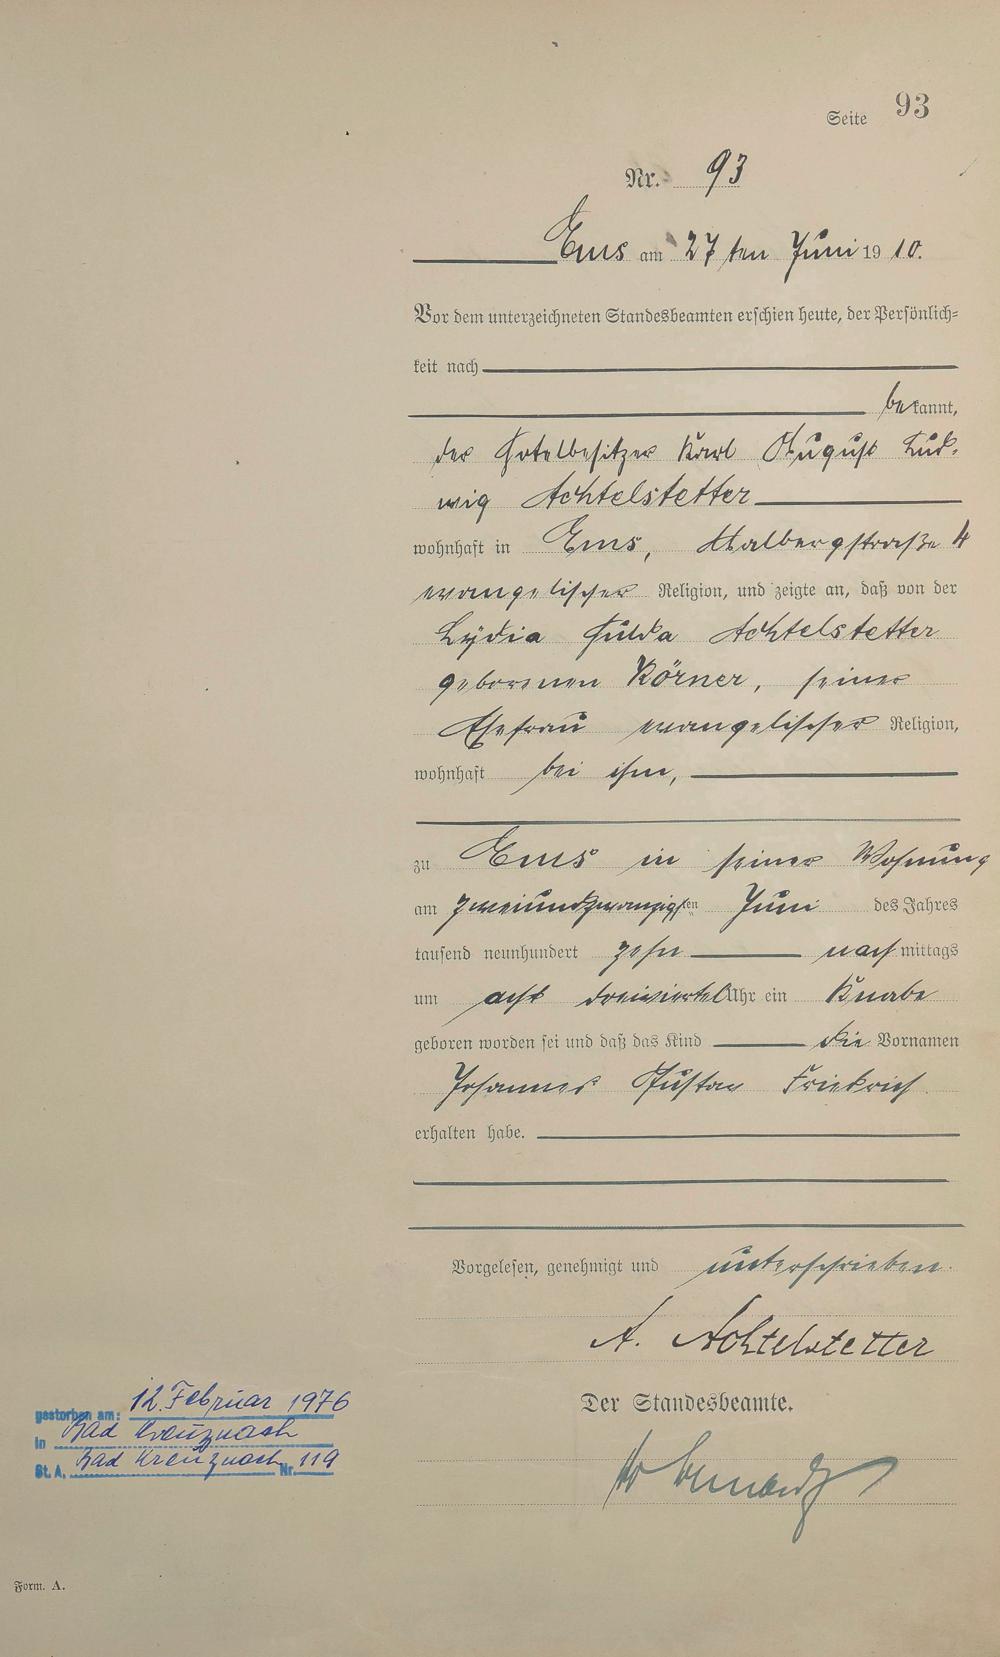 Seite 93
Nr. 93
Ems am 27 ten Juni 1910.
Vor dem unterzeichneten Standesbeamten erschien heute, der Persönlich=
keit nach
bekannt,
der Hotelbesitzer Karl August Lud-
wig Achtelstetter
wohnhaft in Ems, Malbergstraße 4
evangelischer Religion, und zeigte an, daß von der
Lydia Hulda Achtelstetter
geborenen Körner, seiner
Ehefrau evangelischer Religion,
wohnhaft bei ihm,
zu Ems in seiner Wohnung
am zweiundzwanzigsten Juni des Jahres
tausend neunhundert zehn nachmittags
um acht dreiviertel Uhr ein Knabe
geboren worden sei und daß das Kind die Vornamen
Johannes Gustav Friedrich
erhalten habe.
Vorgelesen, genehmigt und unterschrieben.
A. Achtelstetter
Der Standesbeamte.
gestorben am: 12. Februar 1976
in Bad Kreuznach
St. A. Bad Kreuznach Nr. 119
Form. A.